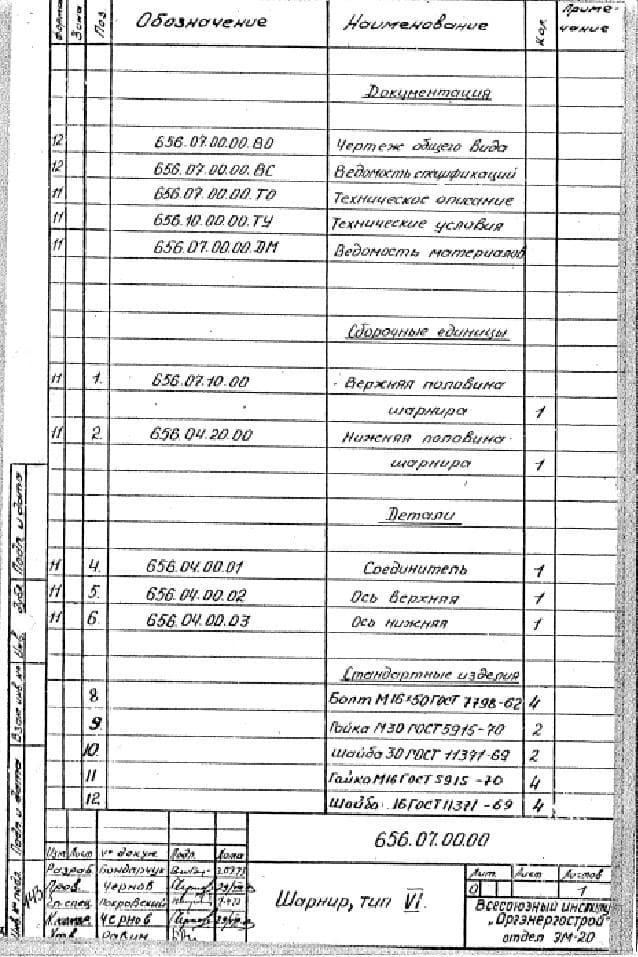 Формат Зона Поз. Обозначение Наименование Кол. Приме-
чание
Документация
12 656.07.00.00.ВО Чертеж общего вида
12 656.07.00.00.ВС Ведомость спецификаций
11 656.07.00.00.ТО Техническое описание
11 656.10.00.00.ТУ Технические условия
11 656.07.00.00.ВМ Ведомость материалов
Сборочные единицы
11 1. 656.07.10.00 Верхняя половина
шарнира 1
11 2. 656.04.20.00 Нижняя половина
шарнира 1
Детали
11 4. 656.04.00.01 Соединитель 1
11 5. 656.04.00.02 Ось верхняя 1
11 6. 656.04.00.03 Ось нижняя 1
Стандартные изделия
8 Болт М16×50 ГОСТ 7798-62 4
9. Гайка М30 ГОСТ 5915-70 2
10. Шайба 30 ГОСТ 11371-69 2
11 Гайка М16 ГОСТ 5915-70 4
12. Шайба 16 ГОСТ 11371-69 4
656.07.00.00
Изм Лист № докум. Подп. Дата
Разраб. Бондарчук
Пров. Чернов
Гл.спец. Покровский
Н.контр. Чернов
Утв.
Шарнир, тип VI.
Лит. Лист Листов
1
Всесоюзный институт
"Оргэнергострой"
отдел ЭМ-20
Подп. и дата
Взам. инв. №
Подп. и дата